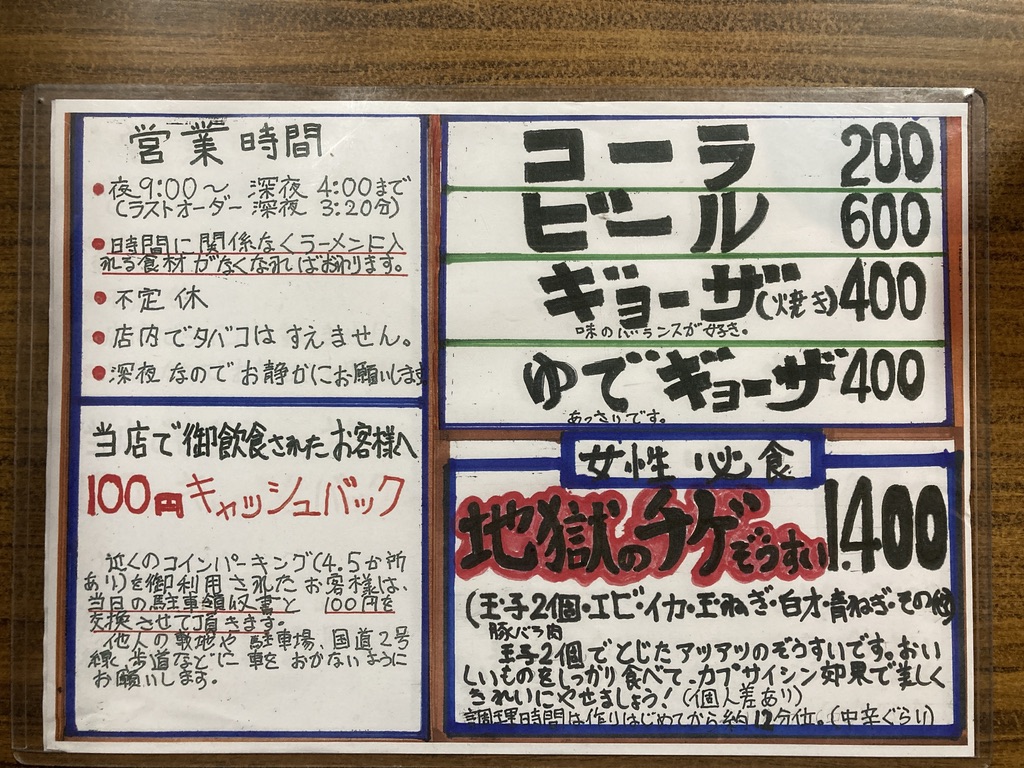 営業時間
●夜9:00～ 深夜 4:00まで
(ラストオーダー 深夜 3:20分)
●時間に関係なくラーメンに入
れる食材がなくなればおわります。
●不定休
●店内でタバコはすえません。
●深夜なのでお静かにお願いします
当店で御飲食されたお客様へ
100円キャッシュバック
近くのコインパーキング(4.5か所
あり)を御利用されたお客様は、
当日の駐車領収書と 100円を
交換させて頂きます。
他人の敷地や 駐車場、国道2号
線、歩道などに車をおかないように
お願いします。
コーラ 200
ビール 600
ギョーザ(焼き) 400
味のバランスが好き。
ゆでギョーザ 400
あっさりです。
女性必食
地獄のチゲぞうすい 1.400
(玉子2個・エビ・イカ・玉ねぎ・白才・青ねぎ・その他)
豚バラ肉
玉子2個でとじたアツアツのぞうすいです。おい
しいものをしっかり食べて、カプサイシン効果で美しく
きれいにやせましょう!(個人差あり)
調理時間は作りはじめてから約12分位。(中辛ぐらい)